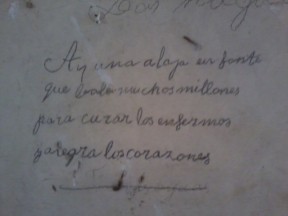 Dos
Ay una alaja en frente
que bale muchos millones
para curar los enfermos
palegra los corazones